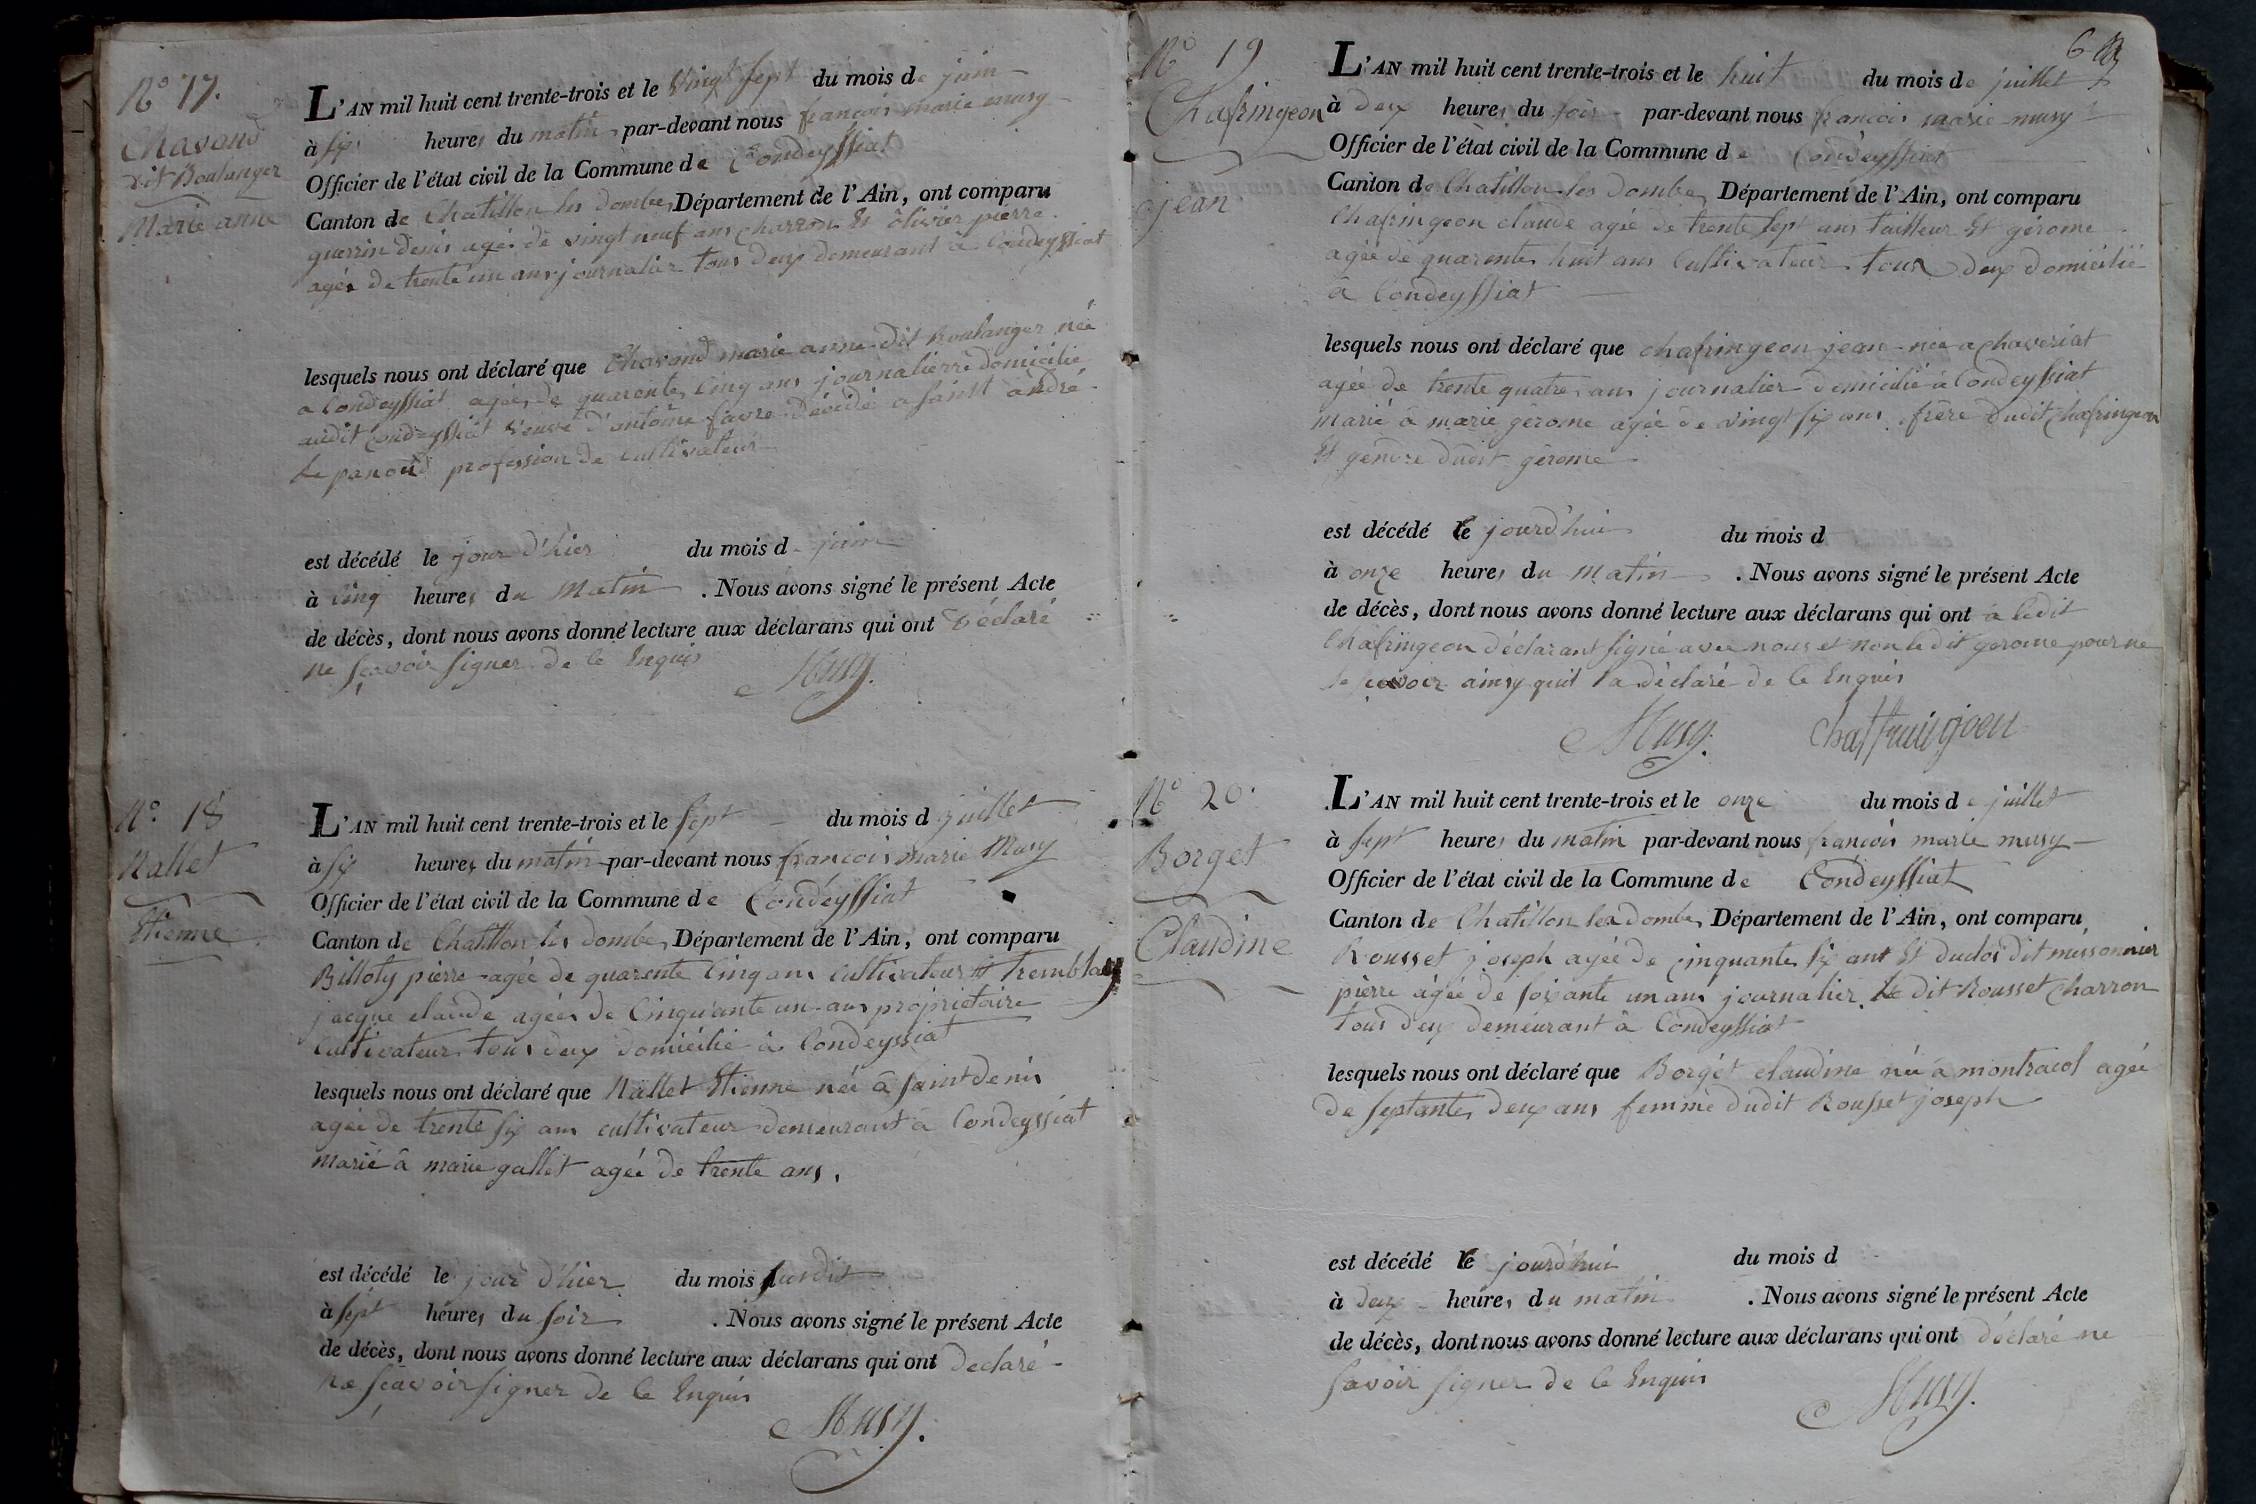 N.o 17.
Chavand
dit Boulanger
Marie anne
L'AN mil huit cent trente-trois et le vingt sept du mois de juin
à six heures du matin par-devant nous françois marie musy
Officier de l'état civil de la Commune de Condeyssiat
Canton de Chatillon les dombes Département de l'Ain, ont comparu
guerrin denis agés de vingt neuf ans charron Et olivier pierre
agés de trente un ans journalier tous deux demeurant à Condeyssiat
lesquels nous ont déclaré que Chavand marie anne dit Boulanger née
a Condeyssiat agées de quarentes cinq ans journalierre domicilié
audit Condeyssiat veuve d'antoine favre décédé a saint andré
le panoud profession de cultivateur
est décédé le jour d'hier du mois de juin
à cinq heures du Matin . Nous avons signé le présent Acte
de décès, dont nous avons donné lecture aux déclarans qui ont déclaré
ne sçavoir signer de ce Enquis
Musy.
N.o 18
Nallet
Etienne
L'AN mil huit cent trente-trois et le sept du mois d juillet
à six heures du matin par-devant nous françois marie Musy
Officier de l'état civil de la Commune de Condéyssiat
Canton de Chatillon les dombes Département de l'Ain, ont comparu
Billoty pierre agée de quarente Cinq ans cultivateur et tremblay
jacque claude agées de Cinquante un ans propriétaire
Cultivateur tous deux domicilié à Condeyssiat
lesquels nous ont déclaré que Nallet Etienne née à saint denis
agée de trente six ans cultivateur demeurant à Condeyssiat
Marié à marie gallet agée de trente ans.
est décédé le jour d'hier du mois susdit
à sept heures du soir . Nous avons signé le présent Acte
de décès, dont nous avons donné lecture aux déclarans qui ont declaré
ne sçavoir signer de ce Enquis
Musy.
6
N.o 19
Chafringeon
jean
L'AN mil huit cent trente-trois et le huit du mois de juillet
à deux heures du soir par-devant nous françois marie musy
Officier de l'état civil de la Commune de Condeyssiat
Canton de Chatillon les dombes Département de l'Ain, ont comparu
Chafringeon claude agée de trente sept ans tailleur Et gérome
agée de quarentes huit ans Cultivateur tous deux domicilié
a Condeyssiat
lesquels nous ont déclaré que chafringeon jean née a chaveriat
agée de trente quatre ans journalier domicilié à Condeyssiat
marié à marie gérome agée de vingt six ans frère dudit Chafringeon
Et gendre dudit gérome
est décédé le jourd'hui du mois d
à onze heures du matin . Nous avons signé le présent Acte
de décès, dont nous avons donné lecture aux déclarans qui ont à ledit
Chafringeon déclarant signé avec nous et non le dit gerome pour ne
le sçavoir ainsy quil la déclaré de ce Enquis
Musy. Chaffringjoen
N.o 20.
Borget
Claudine
L'AN mil huit cent trente-trois et le onze du mois de juillet
à sept heures du matin par-devant nous françois marie musy
Officier de l'état civil de la Commune de Condeyssiat
Canton de Chatillon les dombes Département de l'Ain, ont comparu
Rousset joseph agée de cinquantes six ans Et duclos dit missonnier
pierre agée de soixante un ans journalier le dit Rousset Charron
tous deux demeurant à Condeyssiat
lesquels nous ont déclaré que Borget claudine née à montracol agée
de septantes deux ans femme dudit Rousset joseph
est décédé le jourd'hui du mois d
à deux heures du matin . Nous avons signé le présent Acte
de décès, dont nous avons donné lecture aux déclarans qui ont déclaré ne
savoir signer de ce Enquis
Musy.